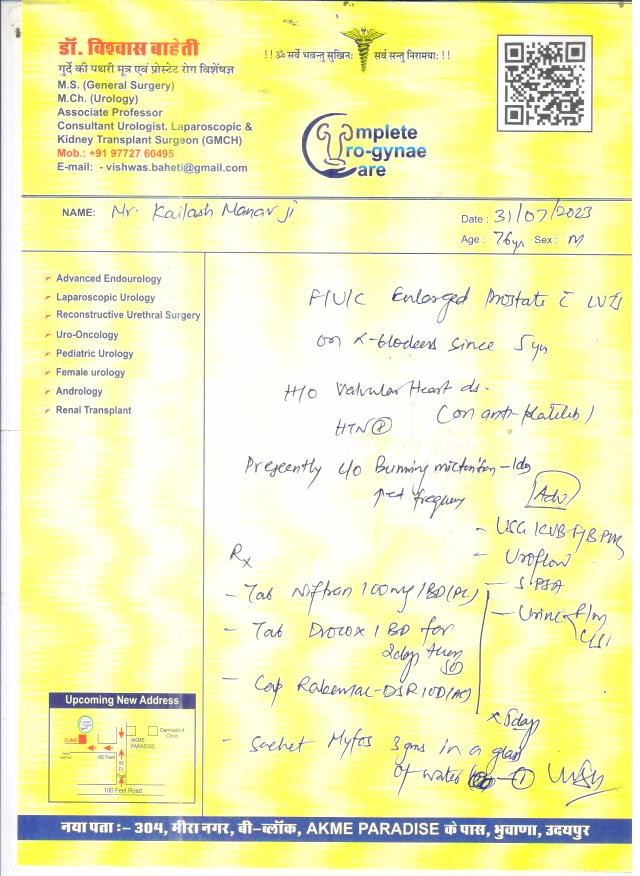 डॉ. विश्वास बाहेती
गुर्दे की पथरी मूत्र एवं प्रोस्टेट रोग विशेषज्ञ
M.S. (General Surgery)
M.Ch. (Urology)
Associate Professor
Consultant Urologist, Laparoscopic &
Kidney Transplant Surgeon (GMCH)
Mob.: +91 97727 60495
E-mail: - vishwas.baheti@gmail.com
!! ॐ सर्वे भवन्तु सुखिनः सर्व सन्तु निरामयाः !!
Complete
Uro-gynae
Care
NAME: Mr. Kailash Manar Ji
Date : 31/07/2023
Age : 76yr Sex : M
Advanced Endourology
Laparoscopic Urology
Reconstructive Urethral Surgery
Uro-Oncology
Pediatric Urology
Female urology
Andrology
Renal Transplant
F/U/C Enlarged Prostate c LUTS
on α-blockers since 5yr
H/O Valvular Heart ds.
(on anti-platelets)
HTN
Presently c/o Burning micturition - 1day
↑ed frequency
Adv
- USG KUB
- Uroflow
- S. PSA
- Urine
C/S
Rx
- Tab Niftran 100mg 1BD (PC)
- Tab 1 BD for
2days then
- Cap DSR 1OD (AC)
x 5day
- Sachet Myfos 3gms in a glass
of water
Upcoming New Address
CLINIC
AKME
PARADISE
Clinic
60 Feet
100 Feet Road
नया पता :– 304, मीरा नगर, बी–ब्लॉक, AKME PARADISE के पास, भुवाणा, उदयपुर